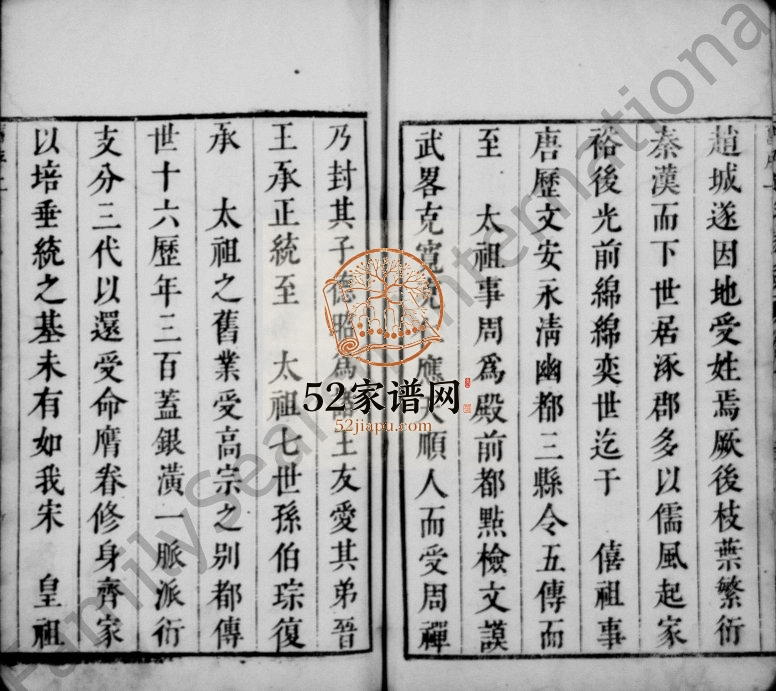 趙城遂因地受姓焉厥後枝葉繁衍
秦漢而下世居涿郡多以儒風起家
裕後光前綿綿奕世迄于 僖祖事
唐歷文安永清幽都三縣令五傳而
至 太祖事周爲殿前都點檢文謨
武畧克寬克 應天順人而受周禪
乃封其子德昭爲 王友愛其弟晉
王承正統至 太祖七世孫伯琮復
承 太祖之舊業受高宗之別都傳
世十六歷年三百蓋銀潢一脈派衍
支分三代以還受命膺眷修身齊家
以培垂統之基未有如我宋 皇祖
52家谱网
52jiapu.com
FamilySearch International